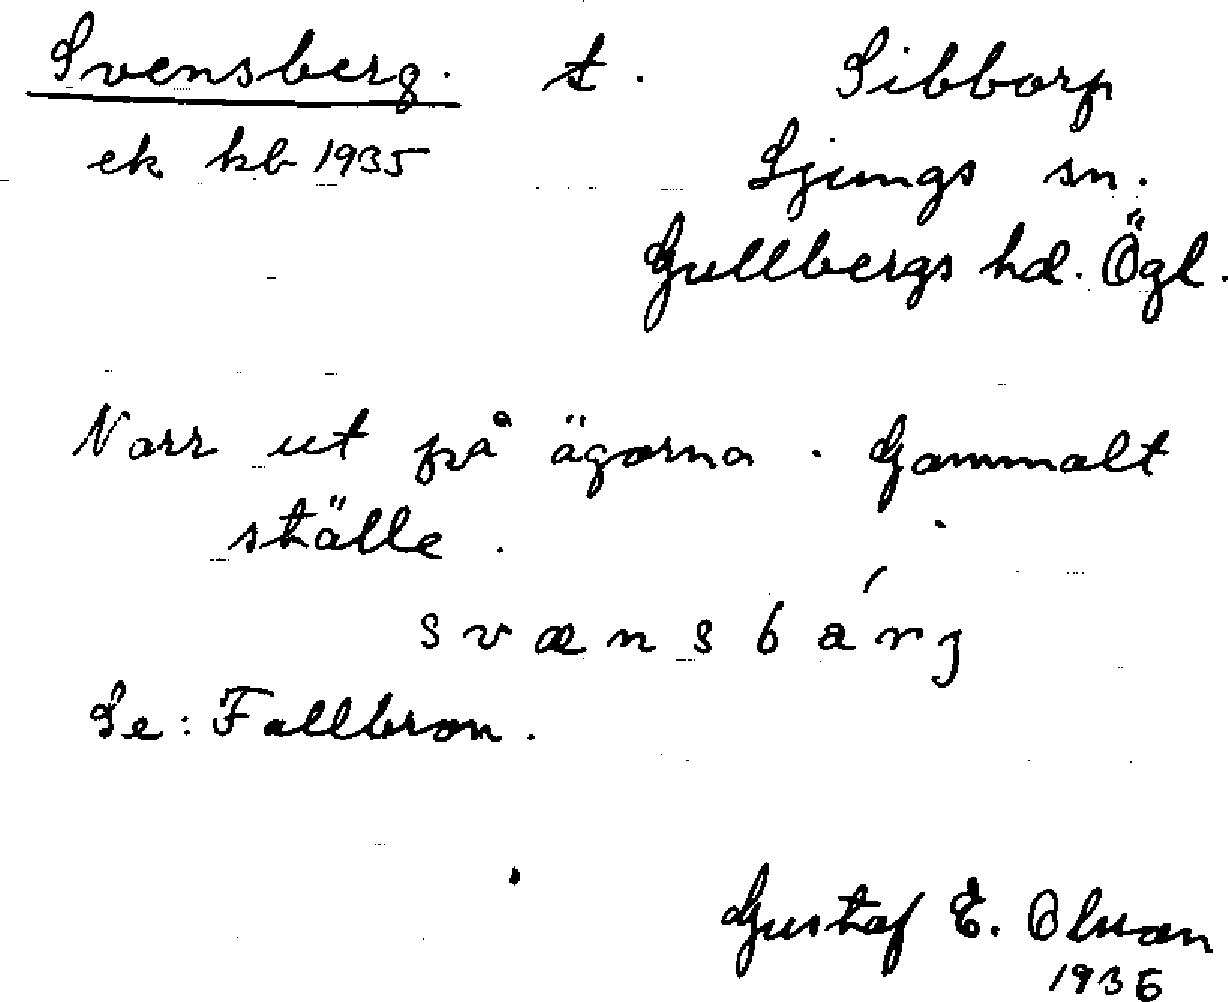 Svensberg. t. Sibborp
ek kb 1935 Ljungs sn.
Gullbergs hd. Ögl.
Norr ut på ägorna. Gammalt
ställe.
svænsbárj
Se: Fallbron.
Gustaf E. Olsson
1936